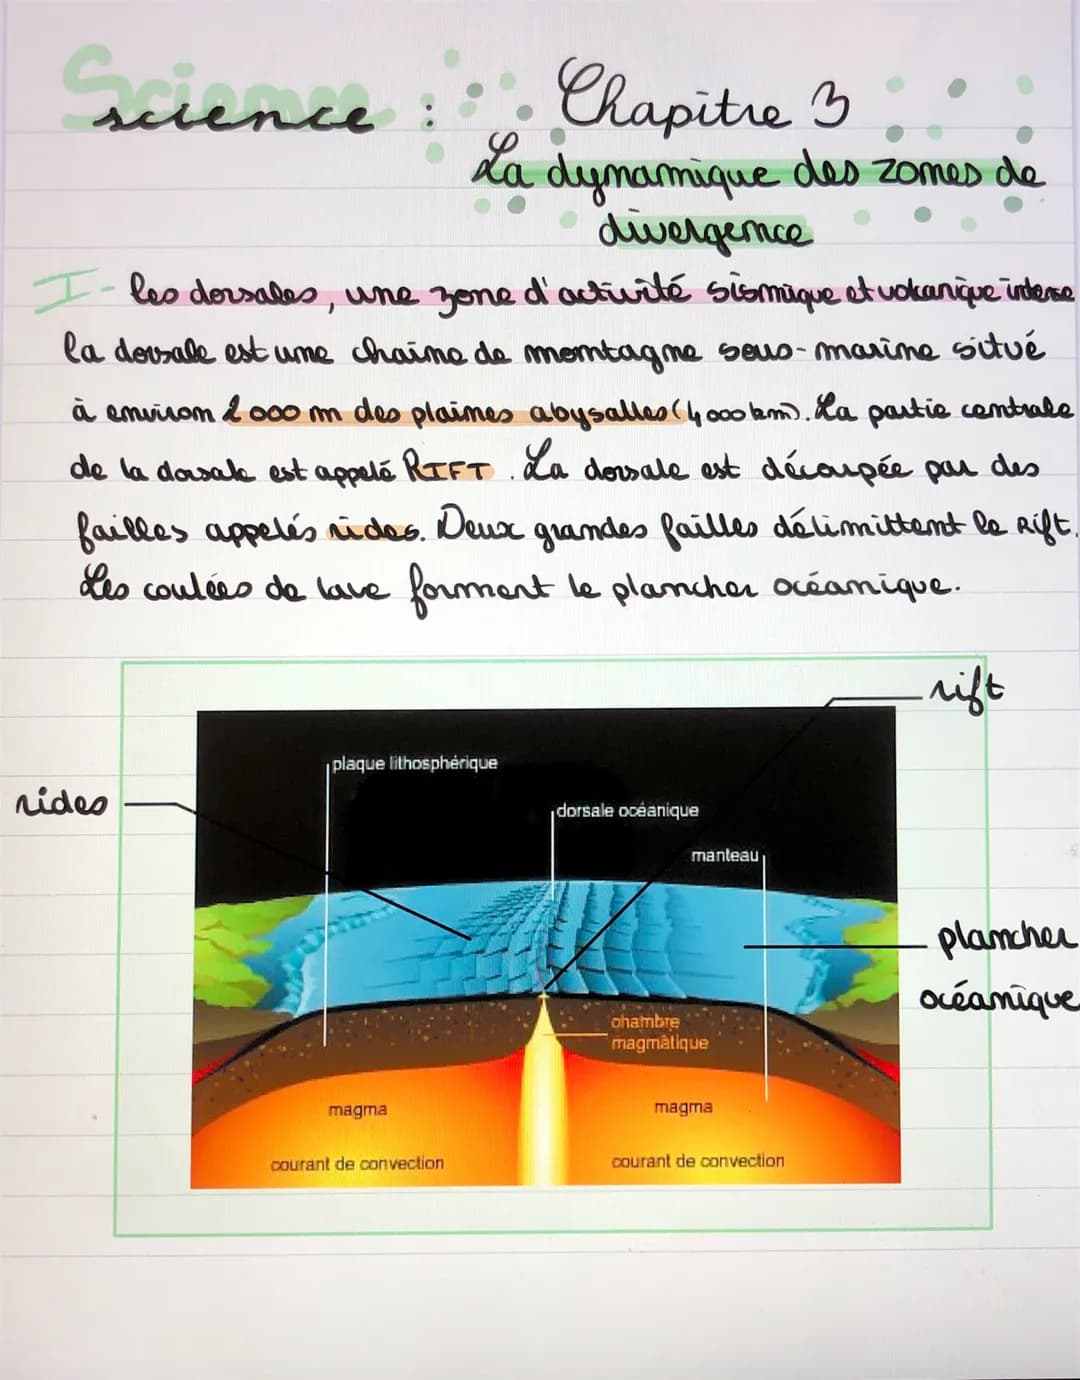 Science
science : Chapitre 3
La dynamique des zones de
divergence
I- les dorsales, une zone d'activité sismique et volcanique intense
la dorsale est une chaine de montagne sous-marine situé
à environ 2 000 m des plaines abysalles (4 000 km). La partie centrale
de la dorsale est appelé RIFT. La dorsale est découpée par des
failles appelés rides. Deux grandes failles délimittent le Rift.
Les coulées de lave forment le plancher océanique.
rift
plaque lithosphérique
rides
dorsale océanique
manteau
plancher
océanique
chambre
magmatique
magma
magma
courant de convection
courant de convection